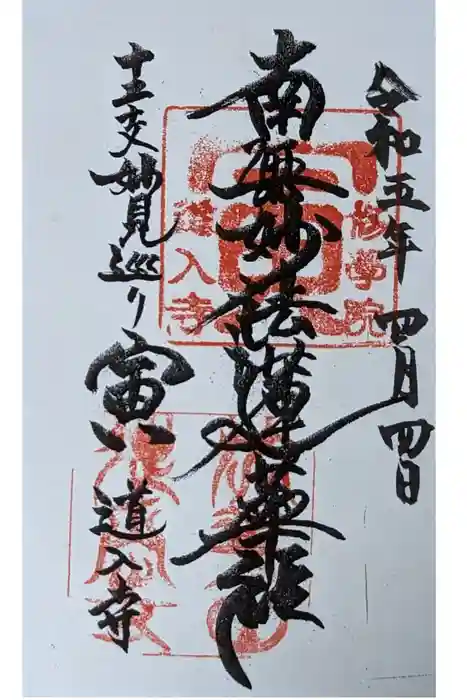 令和五年 四月四日
南無妙法蓮華経
修学院
道入寺
十二支妙見巡り 寅
道入寺